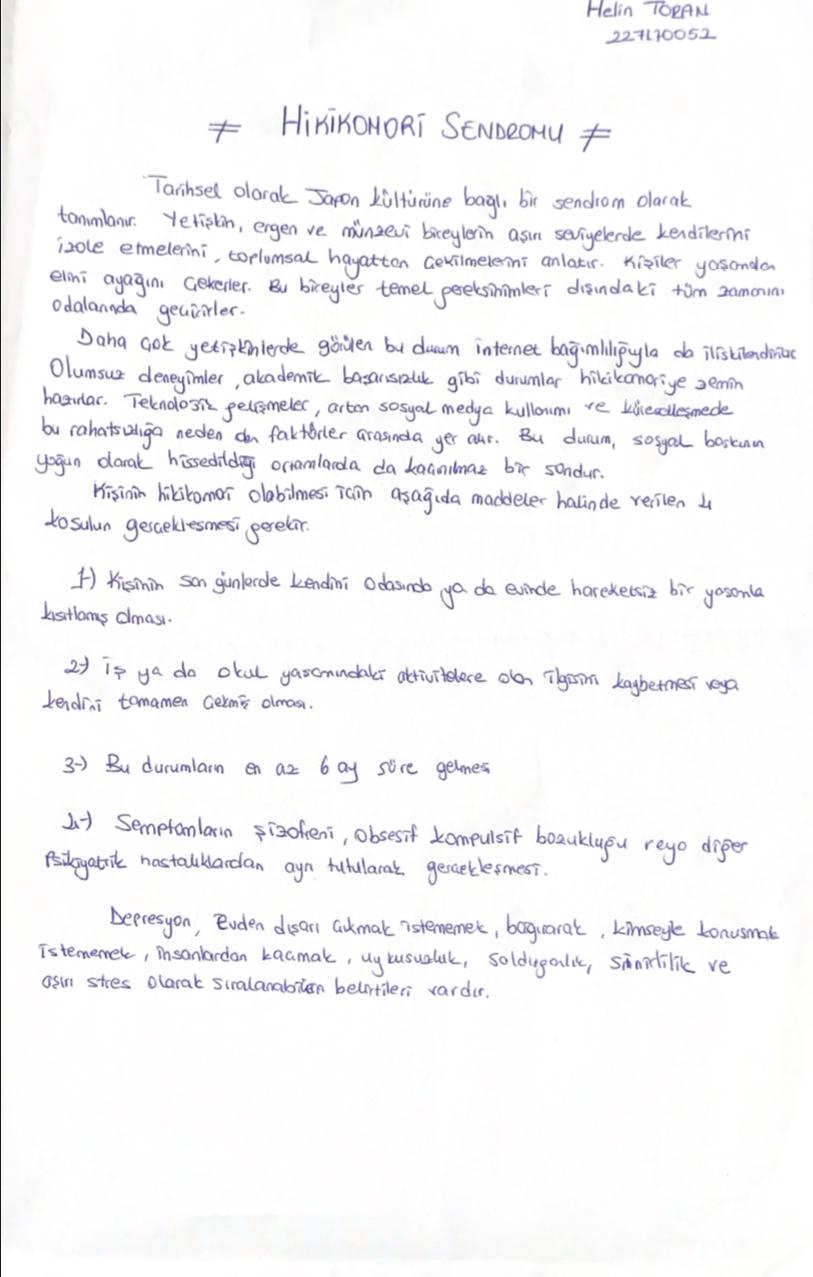 Helin TORAN
227170052
≠ HİKİKOMORİ SENDROMU ≠
Tarihsel olarak Japon kültürüne bağlı bir sendrom olarak
tanımlanır. Yetişkin, ergen ve münzevi bireylerin aşırı seviyelerde kendilerini
izole etmelerini, toplumsal hayattan çekilmelerini anlatır. Kişiler yaşamdan
elini ayağını çekerler. Bu bireyler temel gereksinimleri dışındaki tüm zamanını
odalarında geçirirler.
Daha çok yetişkinlerde görülen bu durum internet bağımlılığıyla da ilişkilendirilir.
Olumsuz deneyimler, akademik başarısızlık gibi durumlar hikikomoriye zemin
hazırlar. Teknolojik gelişmeler, artan sosyal medya kullanımı ve küreselleşmede
bu rahatsızlığa neden olan faktörler arasında yer alır. Bu durum, sosyal baskının
yoğun olarak hissedildiği ortamlarda da kaçınılmaz bir sondur.
Kişinin hikikomori olabilmesi için aşağıda maddeler halinde verilen 4
koşulun gerçekleşmesi gerekir.
1-) Kişinin son günlerde kendini odasında ya da evinde hareketsiz bir yaşamla
kısıtlamış olması.
2-) İş ya da okul yaşamındaki aktivitelere olan ilgisini kaybetmesi veya
kendini tamamen çekmiş olması.
3-) Bu durumların en az 6 ay süre gelmesi
4-) Semptomların şizofreni, obsesif kompulsif bozukluğu veya diğer
Psikiyatrik hastalıklardan ayrı tutularak gerçekleşmesi.
Depresyon, Evden dışarı çıkmak istememek, bağırarak, kimseyle konuşmak
istememek, insanlardan kaçmak, uykusuzluk, saldırganlık, sinirlilik ve
aşırı stres olarak sıralanabilen belirtileri vardır.